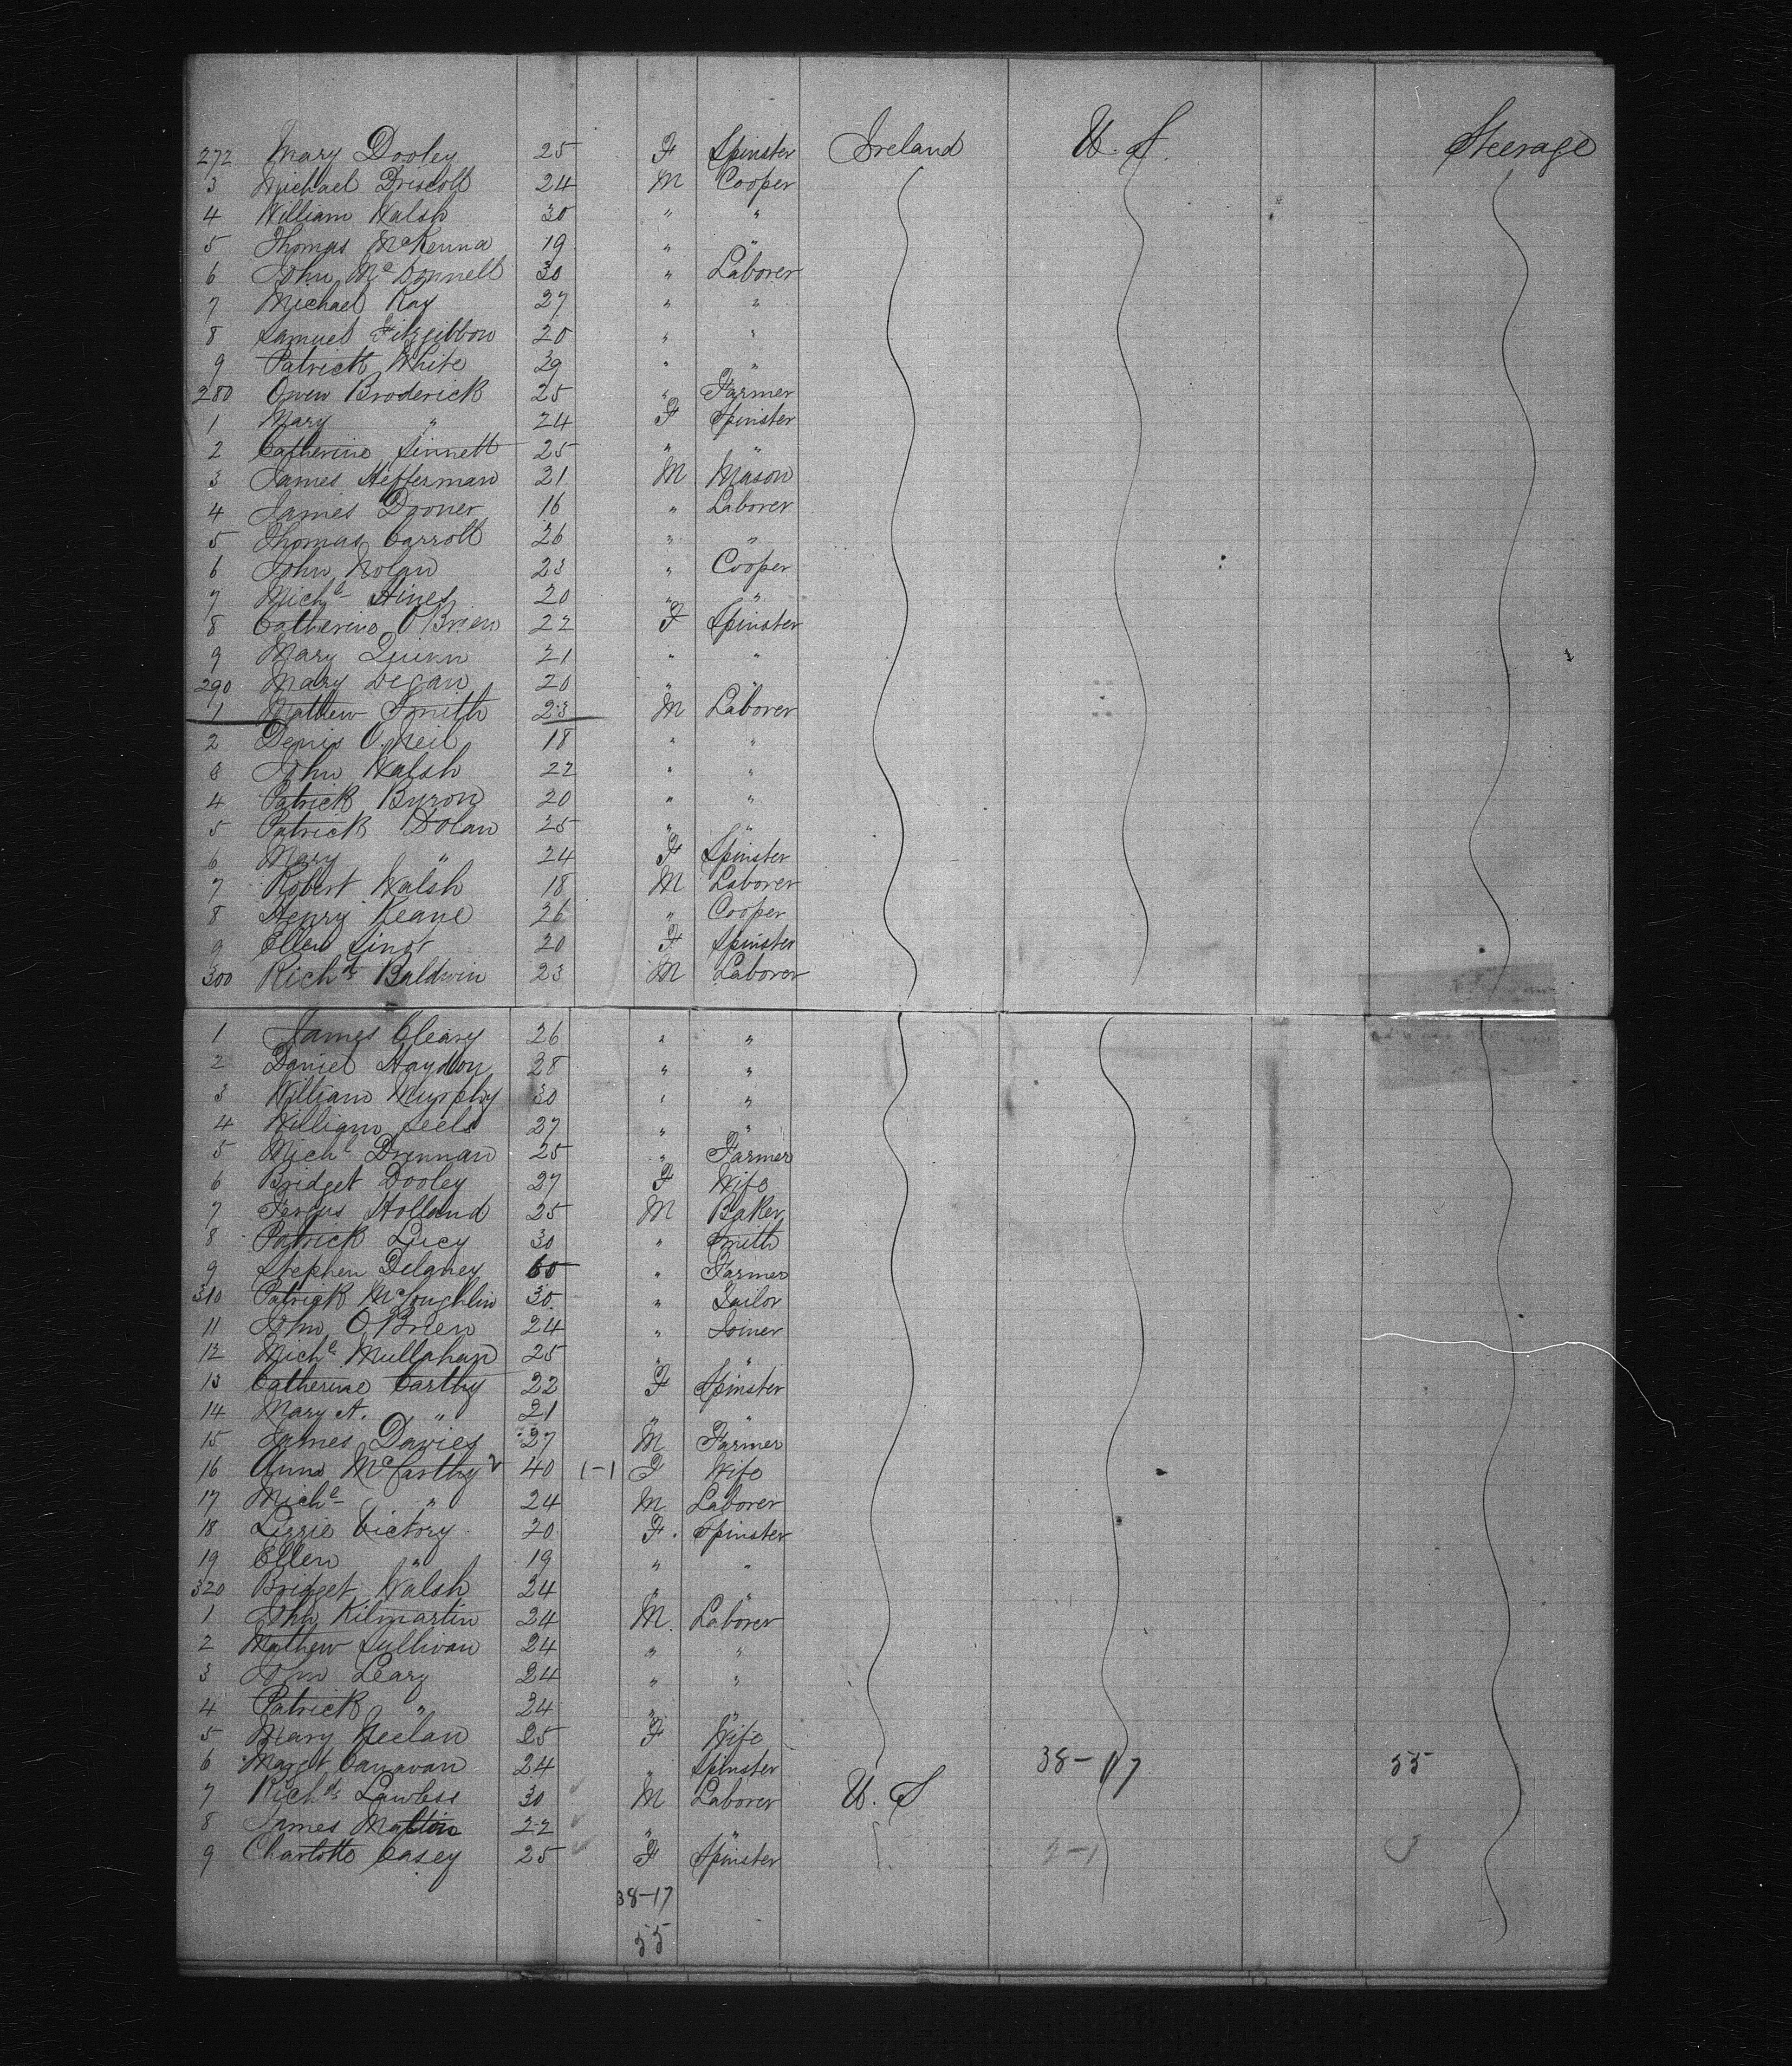 272 Mary Dooley 25 F Spinster Ireland U.S. Steerage
3 Michael Driscoll 24 M Cooper
4 William Walsh 30 " "
5 Thomas McKenna 19 " "
6 John McDonnell 30 " Laborer
7 Michael Kay 27 " "
8 Samuel Fitzgibbon 20 " "
9 Patrick White 29 " "
280 Owen Broderick 25 " Farmer
1 Mary " 24 F Spinster
2 Catherine Sinnett 25 " "
3 James Hefferman 21 M Mason
4 James Dooner 16 " Laborer
5 Thomas Carroll 26 " "
6 John Nolan 23 " Cooper
7 Michl Hines 20 " "
8 Catherine OBrien 22 F Spinster
9 Mary Quinn 21 " "
290 Mary Degan 20 " "
1 Mathew Smith 23 M Laborer
2 Denis O.Neil 18 " "
3 John Walsh 22 " "
4 Patrick Byron 20 " "
5 Patrick Dolan 25 " "
6 Mary " 24 F Spinster
7 Robert Walsh 18 M Laborer
8 Henry Keane 26 " Cooper
9 Ellen Sinot 20 F Spinster
300 Richd Baldwin 23 M Laborer
1 James Cleary 26 " "
2 Daniel Haydon 28 " "
3 William Murphy 30 " "
4 William 27 " "
5 Michl Drennan 25 " Farmer
6 Bridget Dooley 27 F Wife
7 Fergus Holland 25 M Baker
8 Patrick Lucy 30 " Smith
9 Stephen Delaney 60 " Farmer
310 Patrick McLoughlin 30 " Tailor
11 John OBrien 24 " Joiner
12 Michl Mullahan 25 " "
13 Catherine Carthy 22 F Spinster
14 Mary A. " 21 " "
15 James Davies 27 M Farmer
16 Anne McCarthy 40 (-1 F Wife
17 Michl " 24 M Laborer
18 Lizzie Victory 20 F. Spinster
19 Ellen " 19 " "
320 Bridget Walsh 24 " "
1 John Kilmartin 24 M. Laborer
2 Mathew Sullivan 24 " "
3 John Leary 24 " "
4 Patrick " 24 " "
5 Mary Neelan 25 F Wife
6 Marget Canavan 24 " Spinster 38-17 55
7 Richd Lawless 30 M Laborer U.S
8 James Martin 22 " "
9 Charlotte Casey 25 F Spinster 2-1
38-17
55